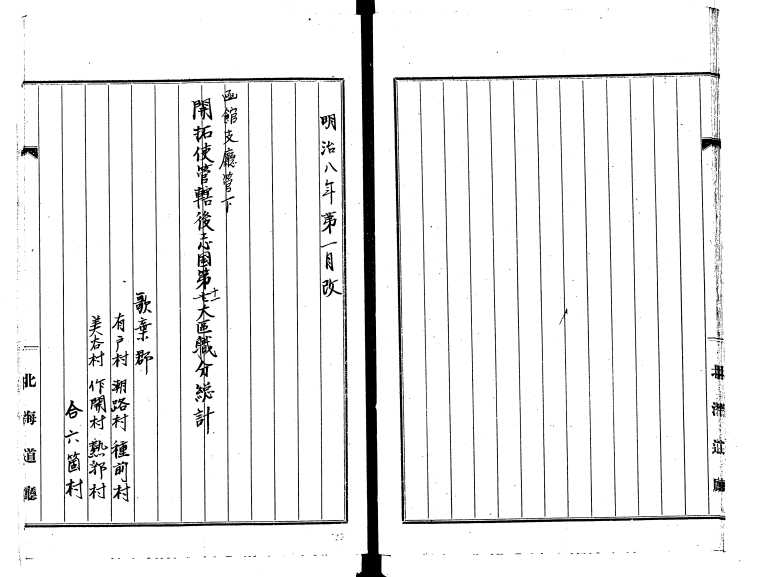 明治八年第一月改
函館支廳管下
開拓使管轄後志國第七大區職分総計
十二
歌棄郡
有戸村 潮路村 種前村
美谷村 作開村 熱郛村
合六箇村
北海道廳
北海道廳